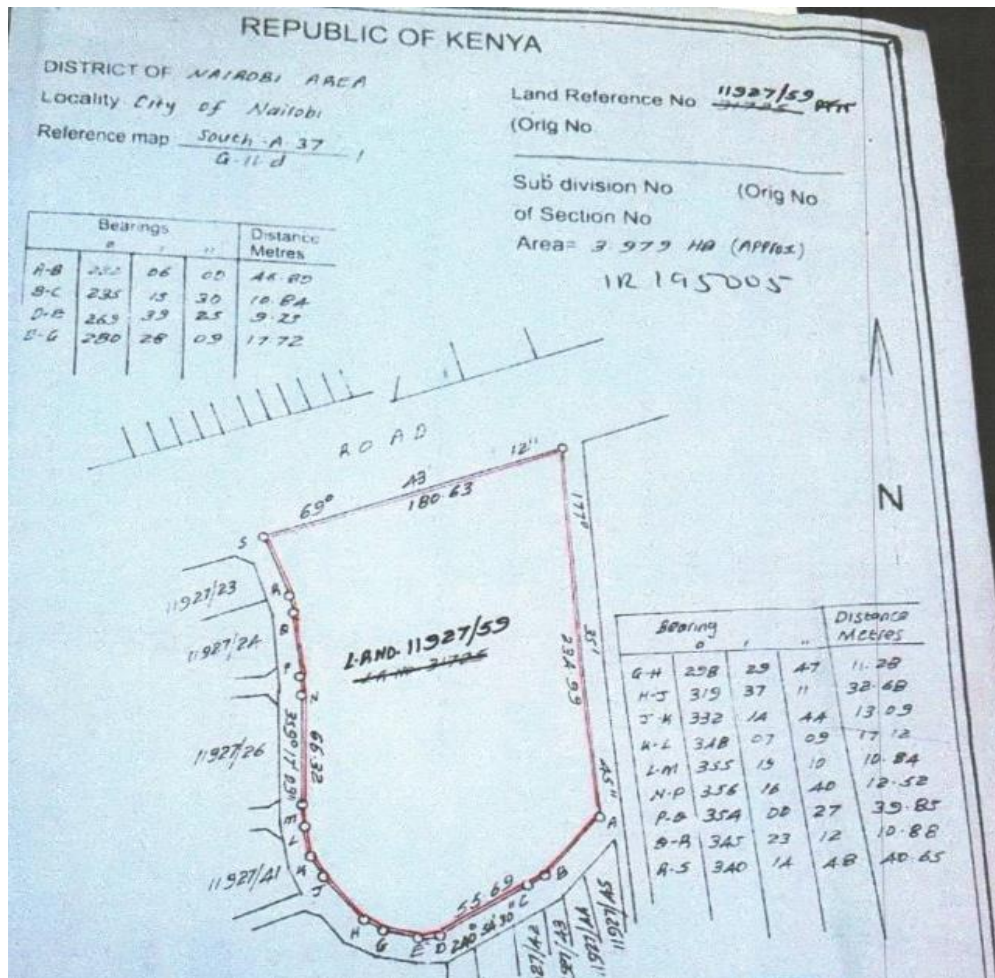 REPUBLIC OF KENYA
DISTRICT OF NAIROBI AREA
Locality City of Nairobi
Reference map South-A-37
G-11-d
Land Reference No 11927/59
31725
(Orig No
Sub division No (Orig No
of Section No
Area= 3.979 HA (APPROX)
IR 195005
Bearings Distance
° ' " Metres
A-B 06 00
B-C 235 15 30 10.84
D-E 269 39 25 9.25
E-G 280 28 09 17.72
ROAD
69° 43' 12"
180.63
177° 35' 45"
234.99
N
S
R
Q
P
N
M
L
K
J
H
G
E
D
C
B
A
11927/23
11927/24
11927/26
11927/41
L.R.NO. 11927/59
359° 17'
66.32
55.69
240° 54' 30"
11927/45
11927/44
Bearing Distance
° ' " Metres
G-H 298 29 47 11.28
H-J 319 37 11 32.68
J-K 332 14 44 13.09
K-L 348 07 09 17.12
L-M 355 15 10 10.84
N-P 356 16 40 12.52
P-Q 354 00 27 39.85
Q-R 345 23 12 10.88
R-S 340 14 48 40.65